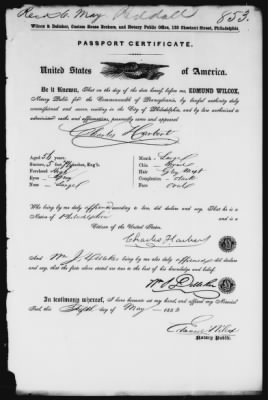 Recd 6 May
853.
Wilcox & Dellaker, Custom House Brokers, and Notary Public Office, 123 Chestnut Street, Philadelphia.
PASSPORT CERTIFICATE.
United States of America.
Be it Known, That on the day of the date hereof, before me, EDMUND WILCOX,
Notary Public for the Commonwealth of Pennsylvania, by lawful authority duly
commissioned and sworn, residing in the City of Philadelphia, and by law authorized to
administer oaths and affirmations, personally came and appeared
Charles Harbert
Aged years,
Stature, 5 feet inches, Eng'h
Forehead High
Eyes Grey
Nose Large
Mouth Large
Chin
Hair
Complexion
Face Oval
Who being by me duly affirmed according to law, did declare and say, That he is a
Native of Philadelphia
Citizen of the United States.
Charles Harbert
And Wm J. Dellaker being by me also duly affirmed did declare
and say, that the facts above stated are true to the best of his knowledge and belief.
Wm J Dellaker
In testimony whereof, I have hereunto set my hand, and affixed my Notarial
Seal, this fifth day of May 1853
Edmund Wilcox
Notary Public.